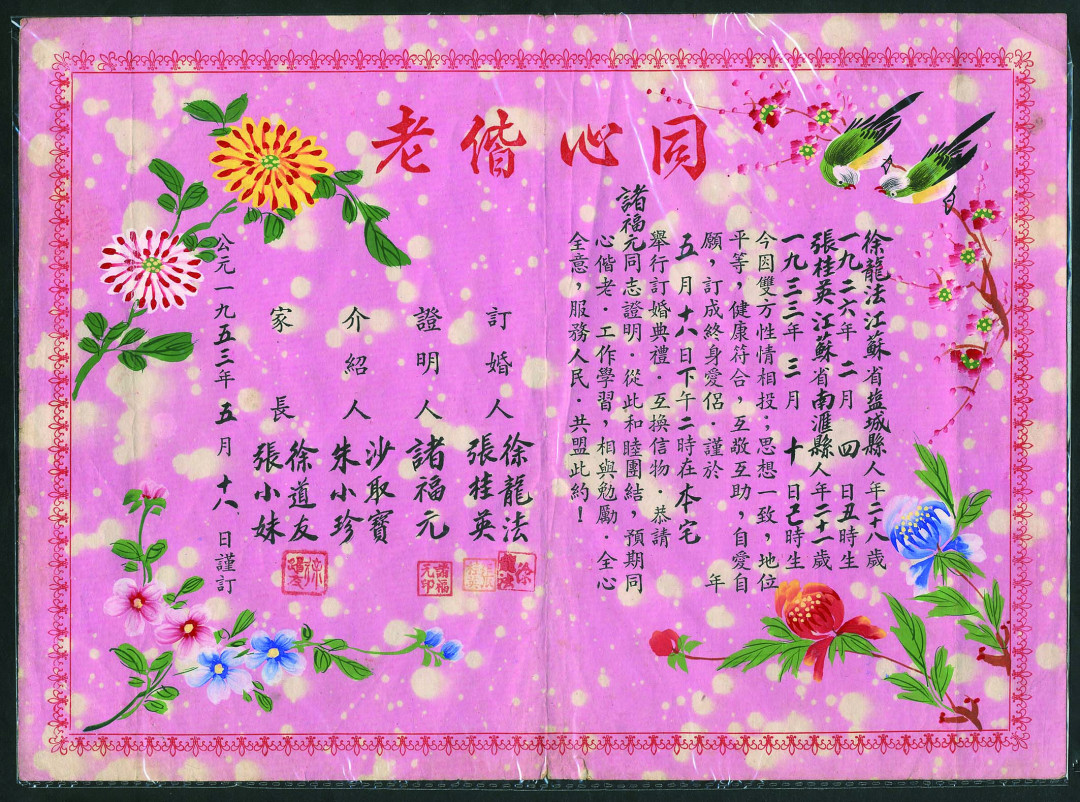 同心偕老
徐龍法江蘇省塩城縣人年二十八歲
一九二六年二月四日丑時生
張桂英江蘇省南滙縣人年二十一歲
一九三三年三月十日己時生
今因雙方性情相投；思想一致，地位
平等，健康符合，互敬互助，自愛自
願，訂成終身愛侶．謹於 年
五月十八日下午二時在本宅
舉行訂婚典禮．互換信物．恭請
諸福元同志證明．從此和睦團結，預期同
心偕老．工作學習，相與勉勵．全心
全意，服務人民．共盟此約！
訂婚人 徐龍法
張桂英
證明人 諸福元
介紹人 沙取寶
朱小珍
家長 徐道友
張小妹
公元一九五三年五月十八日謹訂
徐龍法
諸福元印